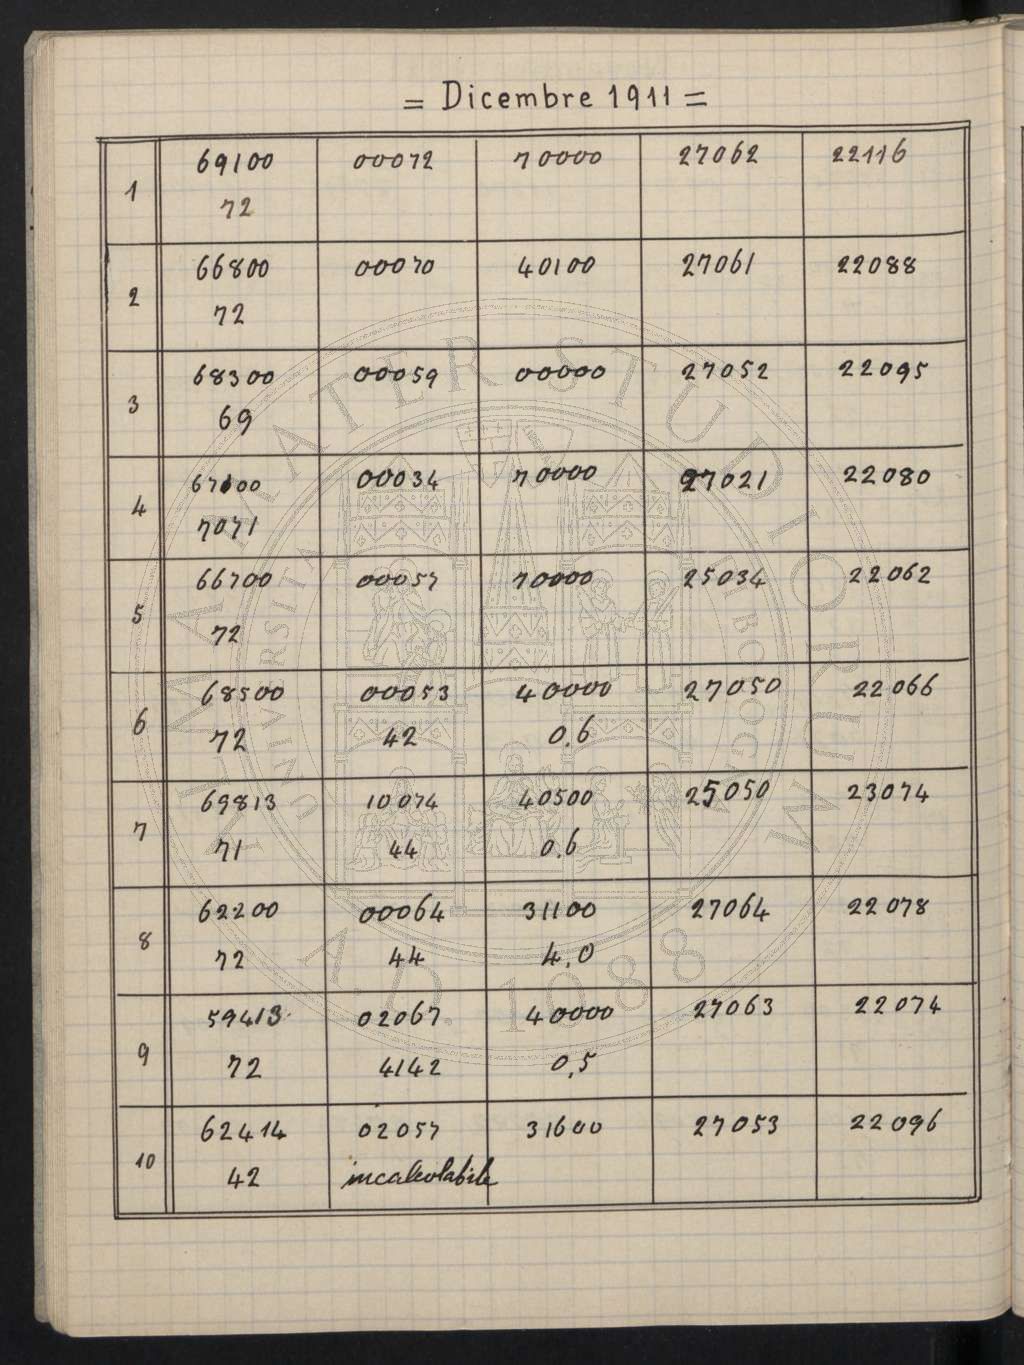 = Dicembre 1911 =
1 69100 00072 70000 27062 22116
72
2 66800 00070 40100 27061 22088
72
3 68300 00059 00000 27052 22095
69
4 67100 00034 70000 27021 22080
7071
5 66700 00057 70000 25034 22062
72
6 68500 00053 40000 27050 22066
72 42 0.6
7 69813 10074 40500 25050 23074
71 44 0.6
8 62200 00064 31100 27064 22078
72 44 4.0
9 59413 02067 40000 27063 22074
72 4142 0.5
10 62414 02057 31600 27053 22096
42 incalcolabile
ALMA MATER STUDIORUM
A.D. 1088